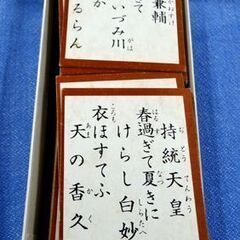 兼輔
て
いづみ川
か
るらん
持統天皇
春過ぎて夏きに
けらし白妙
衣ほすてふ
天の香久